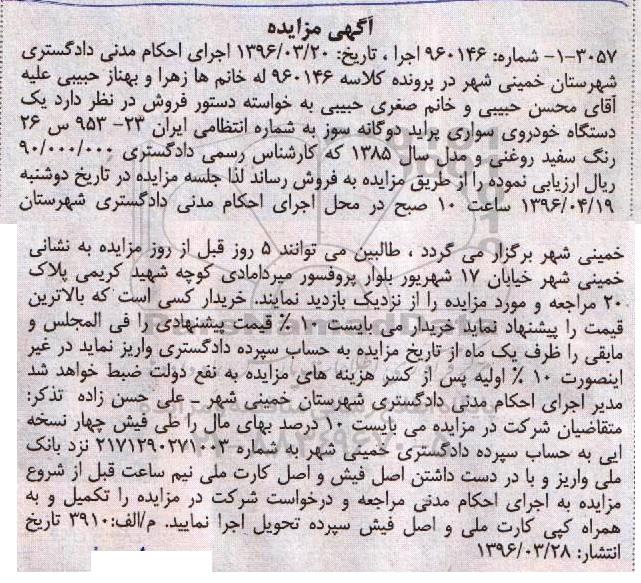 آگهی مزایده
۱-۳۰۵۷- شماره: ۹۶۰۱۴۶ اجرا ، تاریخ: ۱۳۹۶/۰۳/۲۰ اجرای احکام مدنی دادگستری
شهرستان خمینی شهر در پرونده کلاسه ۹۶۰۱۴۶ له خانم ها زهرا و بهناز حبیبی علیه
آقای محسن حبیبی و خانم صغری حبیبی به خواسته دستور فروش در نظر دارد یک
دستگاه خودروی سواری پراید دوگانه سوز به شماره انتظامی ایران ۲۳- ۹۵۳ س ۲۶
رنگ سفید روغنی و مدل سال ۱۳۸۵ که کارشناس رسمی دادگستری ۹۰/۰۰۰/۰۰۰
ریال ارزیابی نموده را از طریق مزایده به فروش رساند لذا جلسه مزایده در تاریخ دوشنبه
۱۳۹۶/۰۴/۱۹ ساعت ۱۰ صبح در محل اجرای احکام مدنی دادگستری شهرستان
خمینی شهر برگزار می گردد ، طالبین می توانند ۵ روز قبل از روز مزایده به نشانی
خمینی شهر خیابان ۱۷ شهریور بلوار پروفسور میردامادی کوچه شهید کریمی پلاک
۲۰ مراجعه و مورد مزایده را از نزدیک بازدید نمایند. خریدار کسی است که بالاترین
قیمت را پیشنهاد نماید خریدار می بایست ۱۰ ٪ قیمت پیشنهادی را فی المجلس و
مابقی را ظرف یک ماه از تاریخ مزایده به حساب سپرده دادگستری واریز نماید در غیر
اینصورت ۱۰ ٪ اولیه پس از کسر هزینه های مزایده به نفع دولت ضبط خواهد شد
مدیر اجرای احکام مدنی دادگستری شهرستان خمینی شهر - علی حسن زاده تذکر:
متقاضیان شرکت در مزایده می بایست ۱۰ درصد بهای مال را طی فیش چهار نسخه
ایی به حساب سپرده دادگستری خمینی شهر به شماره ۲۱۷۱۲۹۰۲۷۱۰۰۳ نزد بانک
ملی واریز و با در دست داشتن اصل فیش و اصل کارت ملی نیم ساعت قبل از شروع
مزایده به اجرای احکام مدنی مراجعه و درخواست شرکت در مزایده را تکمیل و به
همراه کپی کارت ملی و اصل فیش سپرده تحویل اجرا نمایید. م/الف: ۳۹۱۰ تاریخ
انتشار: ۱۳۹۶/۰۳/۲۸